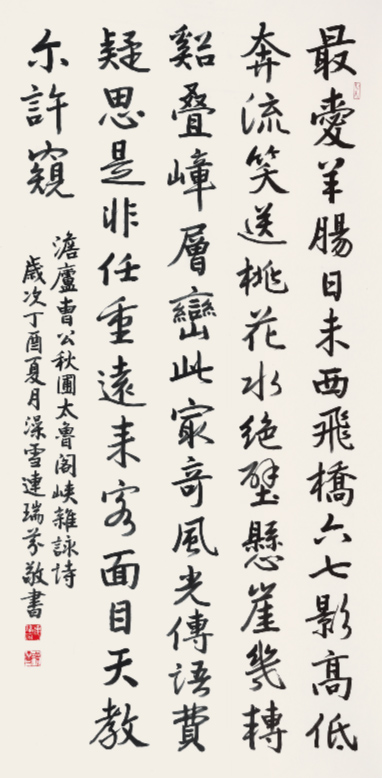 最愛羊腸日未西飛橋六七影高低
奔流笑送桃花水絕壁懸崖幾轉
谿疊嶂層巒此㝡奇風光傳語費
疑思是非任重遠来客面目天教
尒許窺
澹廬曹公秋圃太魯閣峽雜詠詩
歲次丁酉夏月澡雪連瑞芬敬書